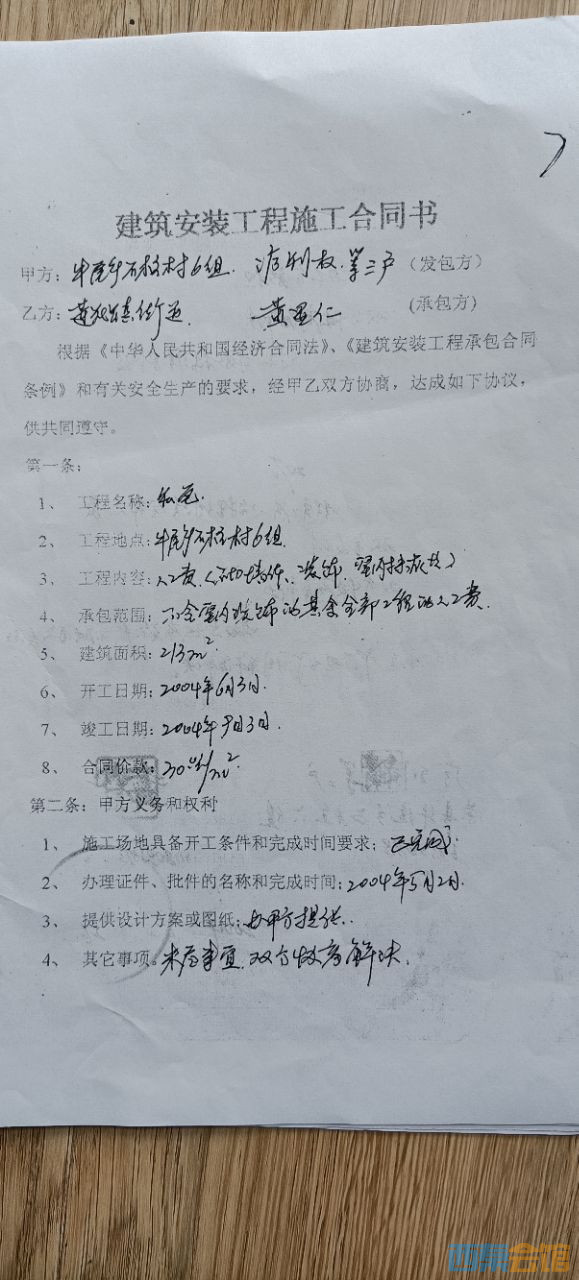 建筑安装工程施工合同书
甲方：石棉村6组 第三户（发包方）
乙方：黄 仁 （承包方）
根据《中华人民共和国经济合同法》、《建筑安装工程承包合同
条例》和有关安全生产的要求，经甲乙双方协商，达成如下协议，
供共同遵守。
第一条：
1、 工程名称：
2、 工程地点：村6组
3、 工程内容：人工费
4、 承包范围：不含室内装饰的其余全部工程的人工费.
5、 建筑面积：213m²
6、 开工日期：2004年6月3日.
7、 竣工日期：2004年9月3日.
8、 合同价款：/m²
第二条：甲方义务和权利
1、 施工场地具备开工条件和完成时间要求；已完成
2、 办理证件、批件的名称和完成时间：2004年5月2日.
3、 提供设计方案或图纸：由甲方提供.
4、 其它事项。未尽事宜.双方协商解决.
西景会馆